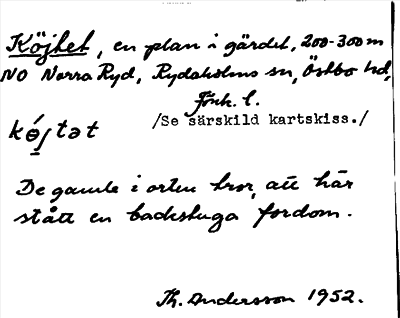 Köjtet, en plan i gärdet, 200-300 m
NO Norra Ryd, Rydaholms sn, Östbo hd,
Jönk. l.
/Se särskild kartskiss./
De gamle i orten tror, att här
stått en backstuga fordom.
Th. Andersson 1952.